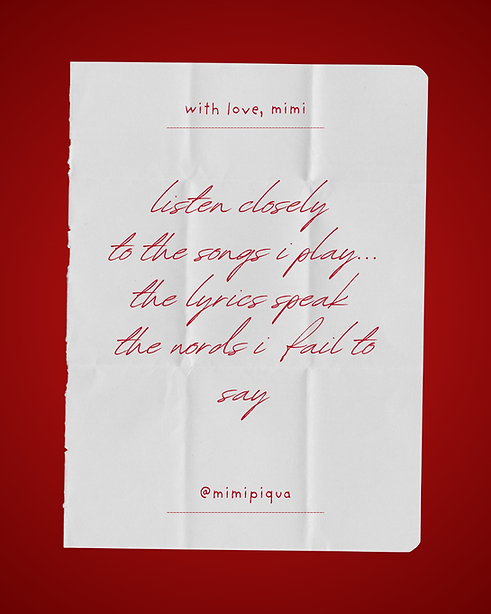 with love, mimi
listen closely
to the songs i play...
the lyrics speak
the words i fail to
say
@mimipiqua